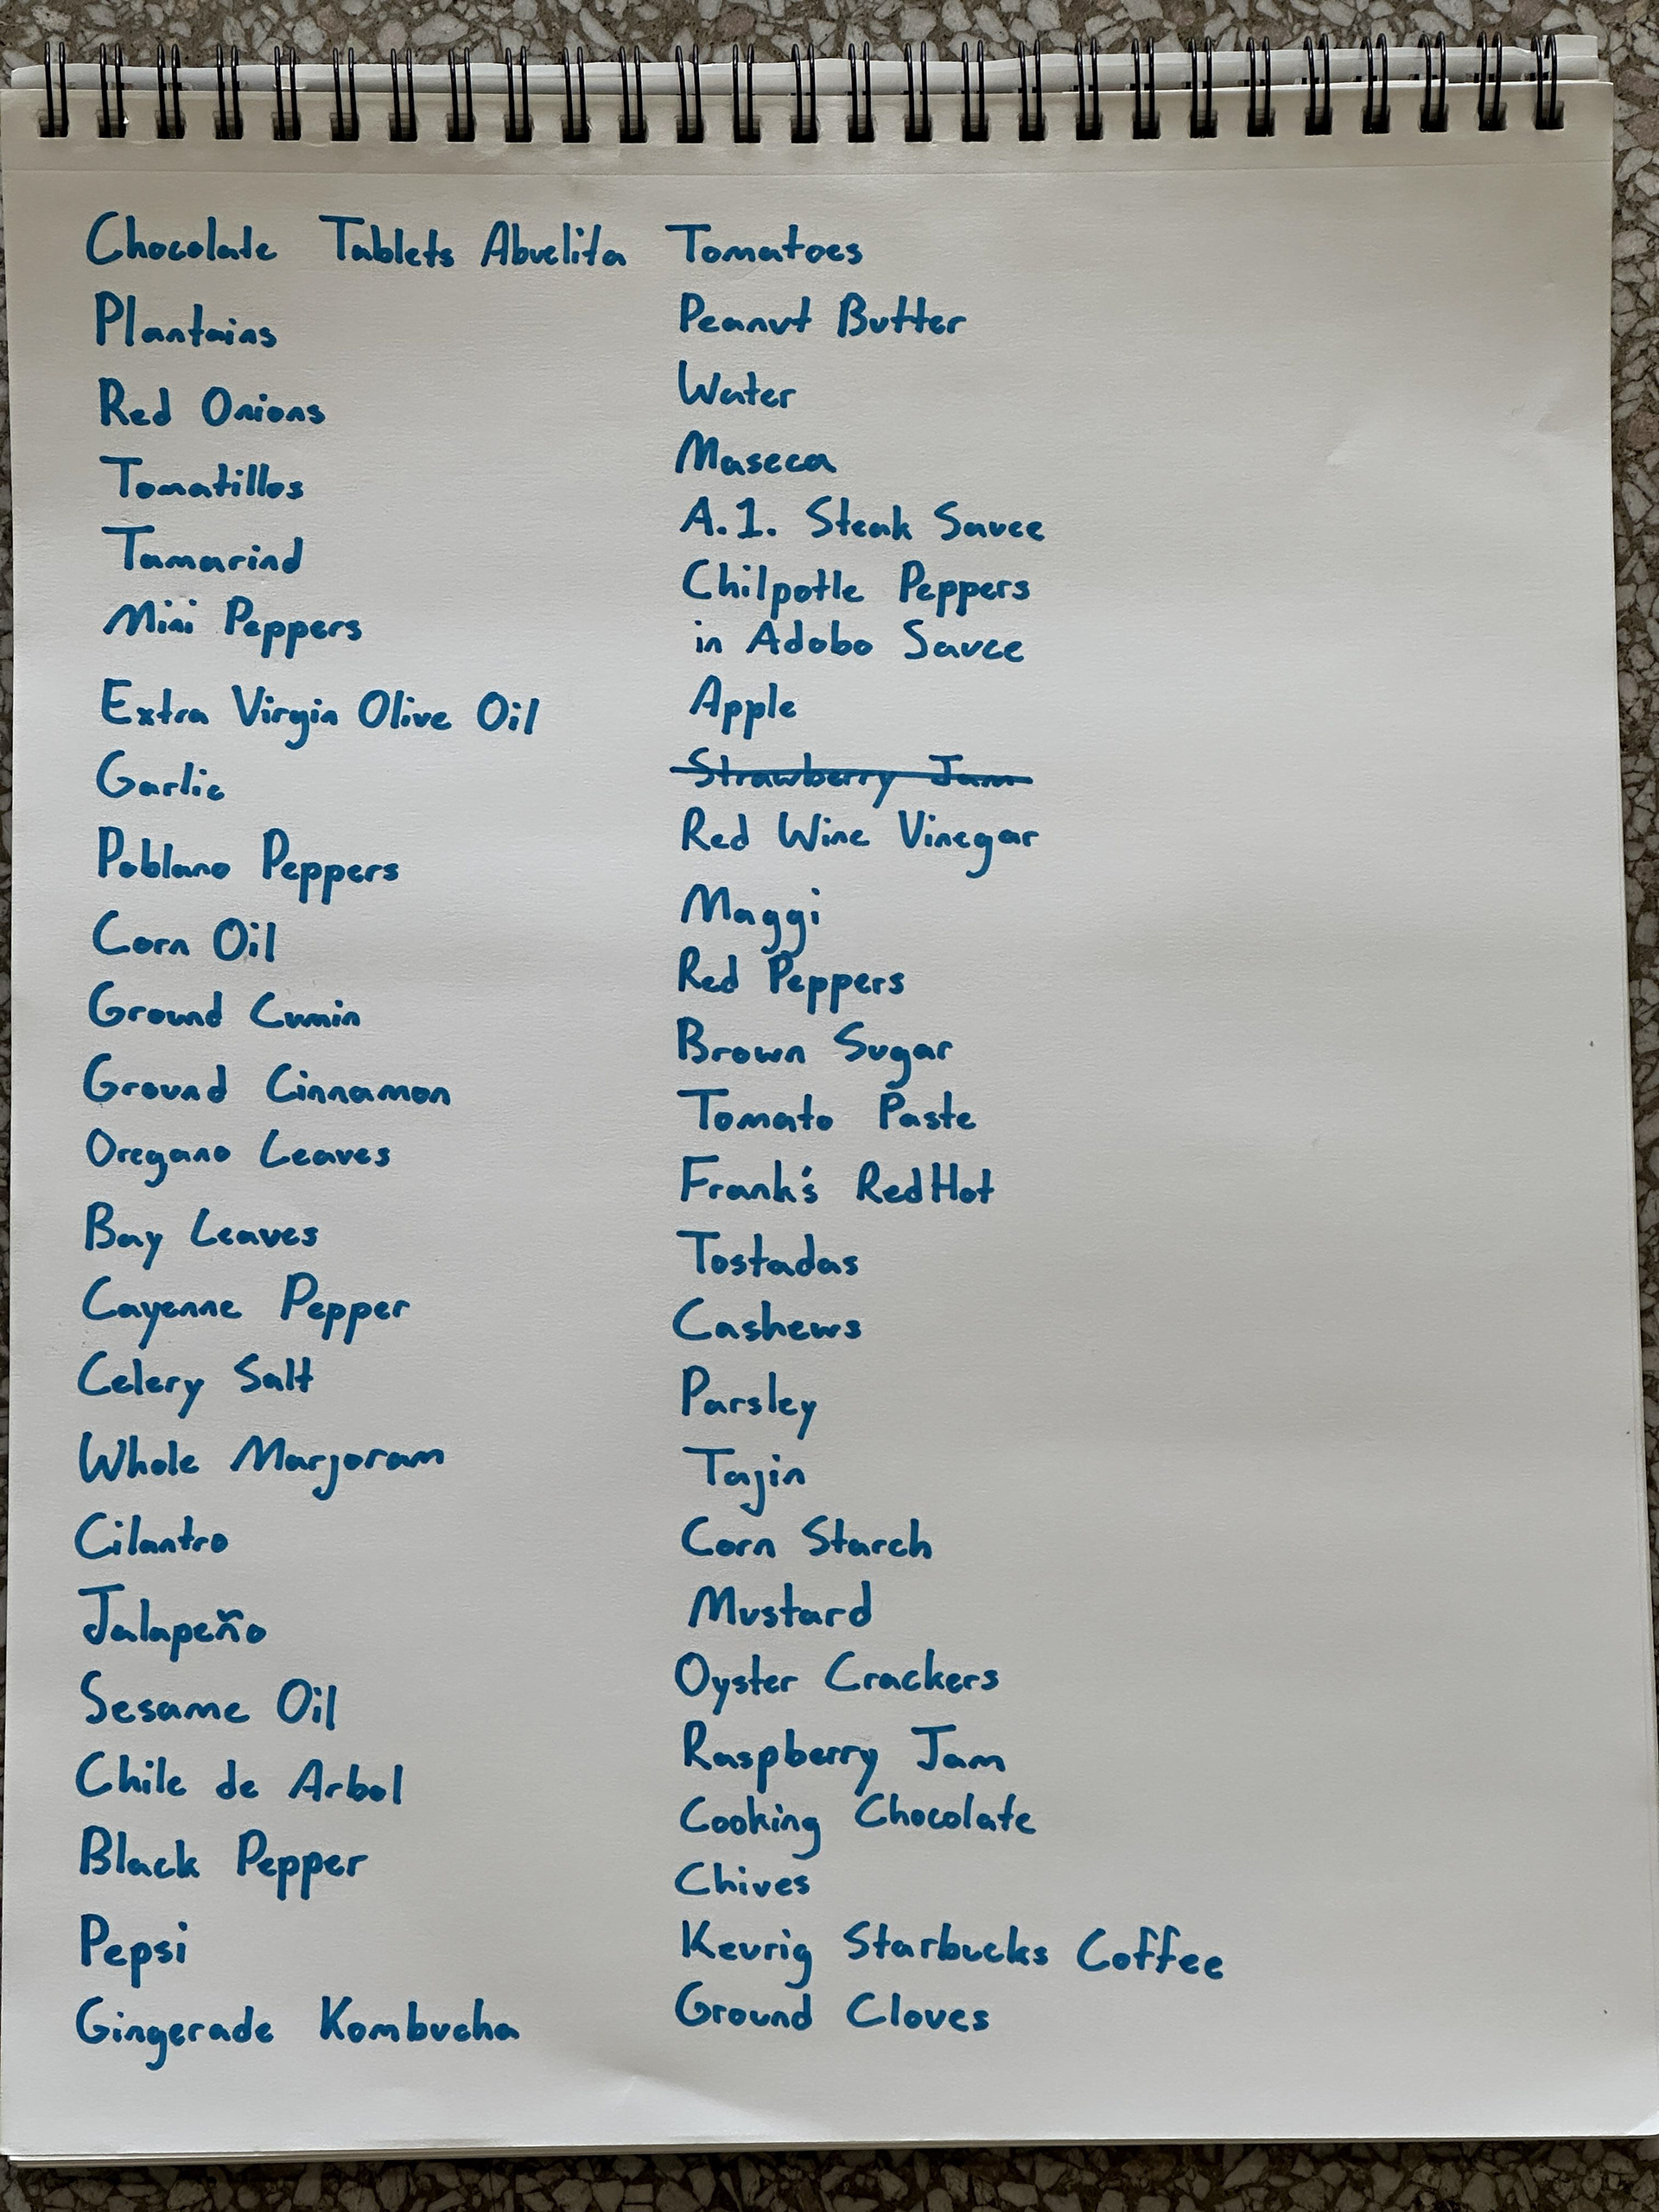 Chocolate Tablets Abuelita
Plantains
Red Onions
Tomatillos
Tamarind
Mini Peppers
Extra Virgin Olive Oil
Garlic
Poblano Peppers
Corn Oil
Ground Cumin
Ground Cinnamon
Oregano Leaves
Bay Leaves
Cayenne Pepper
Celery Salt
Whole Marjoram
Cilantro
Jalapeño
Sesame Oil
Chile de Arbol
Black Pepper
Pepsi
Gingerade Kombucha
Tomatoes
Peanut Butter
Water
Maseca
A.1. Steak Sauce
Chilpotle Peppers
in Adobo Sauce
Apple
Strawberry Jam
Red Wine Vinegar
Maggi
Red Peppers
Brown Sugar
Tomato Paste
Frank's RedHot
Tostadas
Cashews
Parsley
Tajin
Corn Starch
Mustard
Oyster Crackers
Raspberry Jam
Cooking Chocolate
Chives
Keurig Starbucks Coffee
Ground Cloves